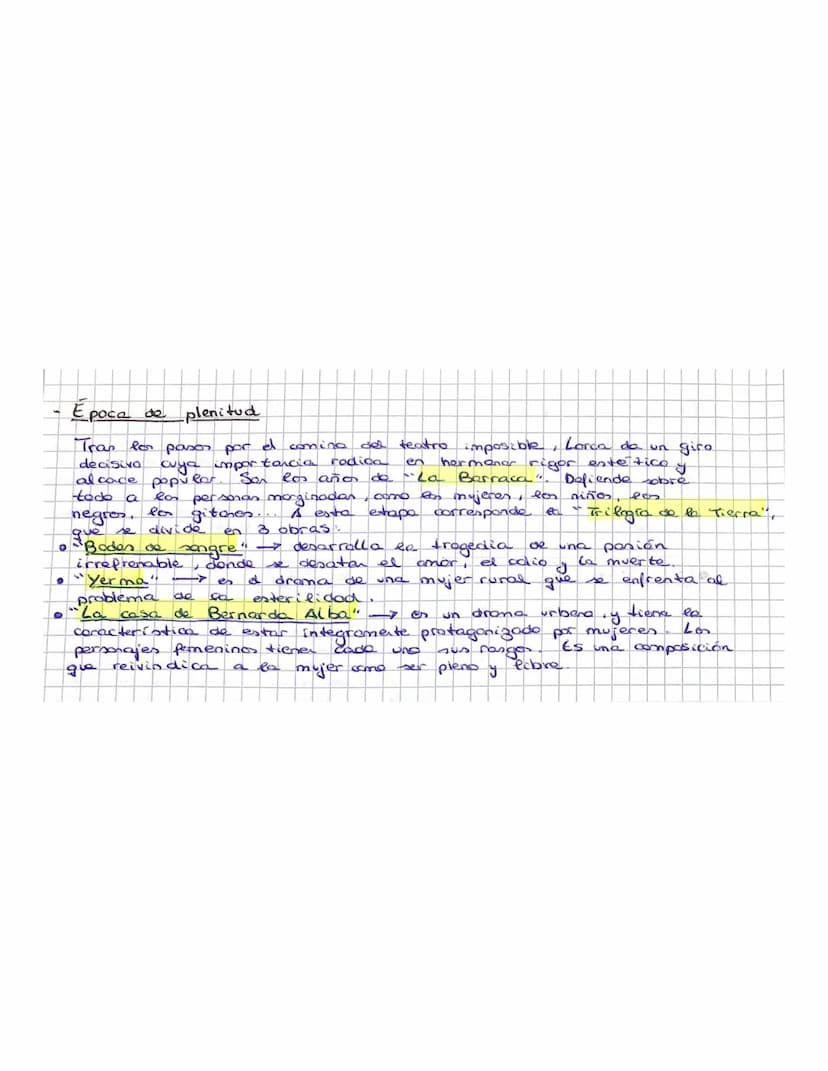 - Época de plenitud
Tras los pasos por el camino del teatro imposible, Lorca da un giro
decisivo cuya importancia radica en hermanar rigor estético y
alcace popular. Son los años de "La Barraca". Defiende sobre
todo a las personas marginadas, como las mujeres, los niños, los
negros, los gitanos... A esta etapa corresponde la "Trilogía de la Tierra",
que se divide en 3 obras:
• "Bodas de sangre" → desarrolla la tragedia de una pasión
irrefrenable, donde se desatan el amor, el odio y la muerte.
• "Yerma" → es el drama de una mujer rural que se enfrenta al
problema de sa esterilidad.
• "La casa de Bernarda Alba" → es un drama urbano, y tiene la
característica de estar íntegramente protagonizado por mujeres. Los
personajes femeninos tienen cada uno sus rasgos. Es una composición
que reivindica a la mujer como ser pleno y libre.